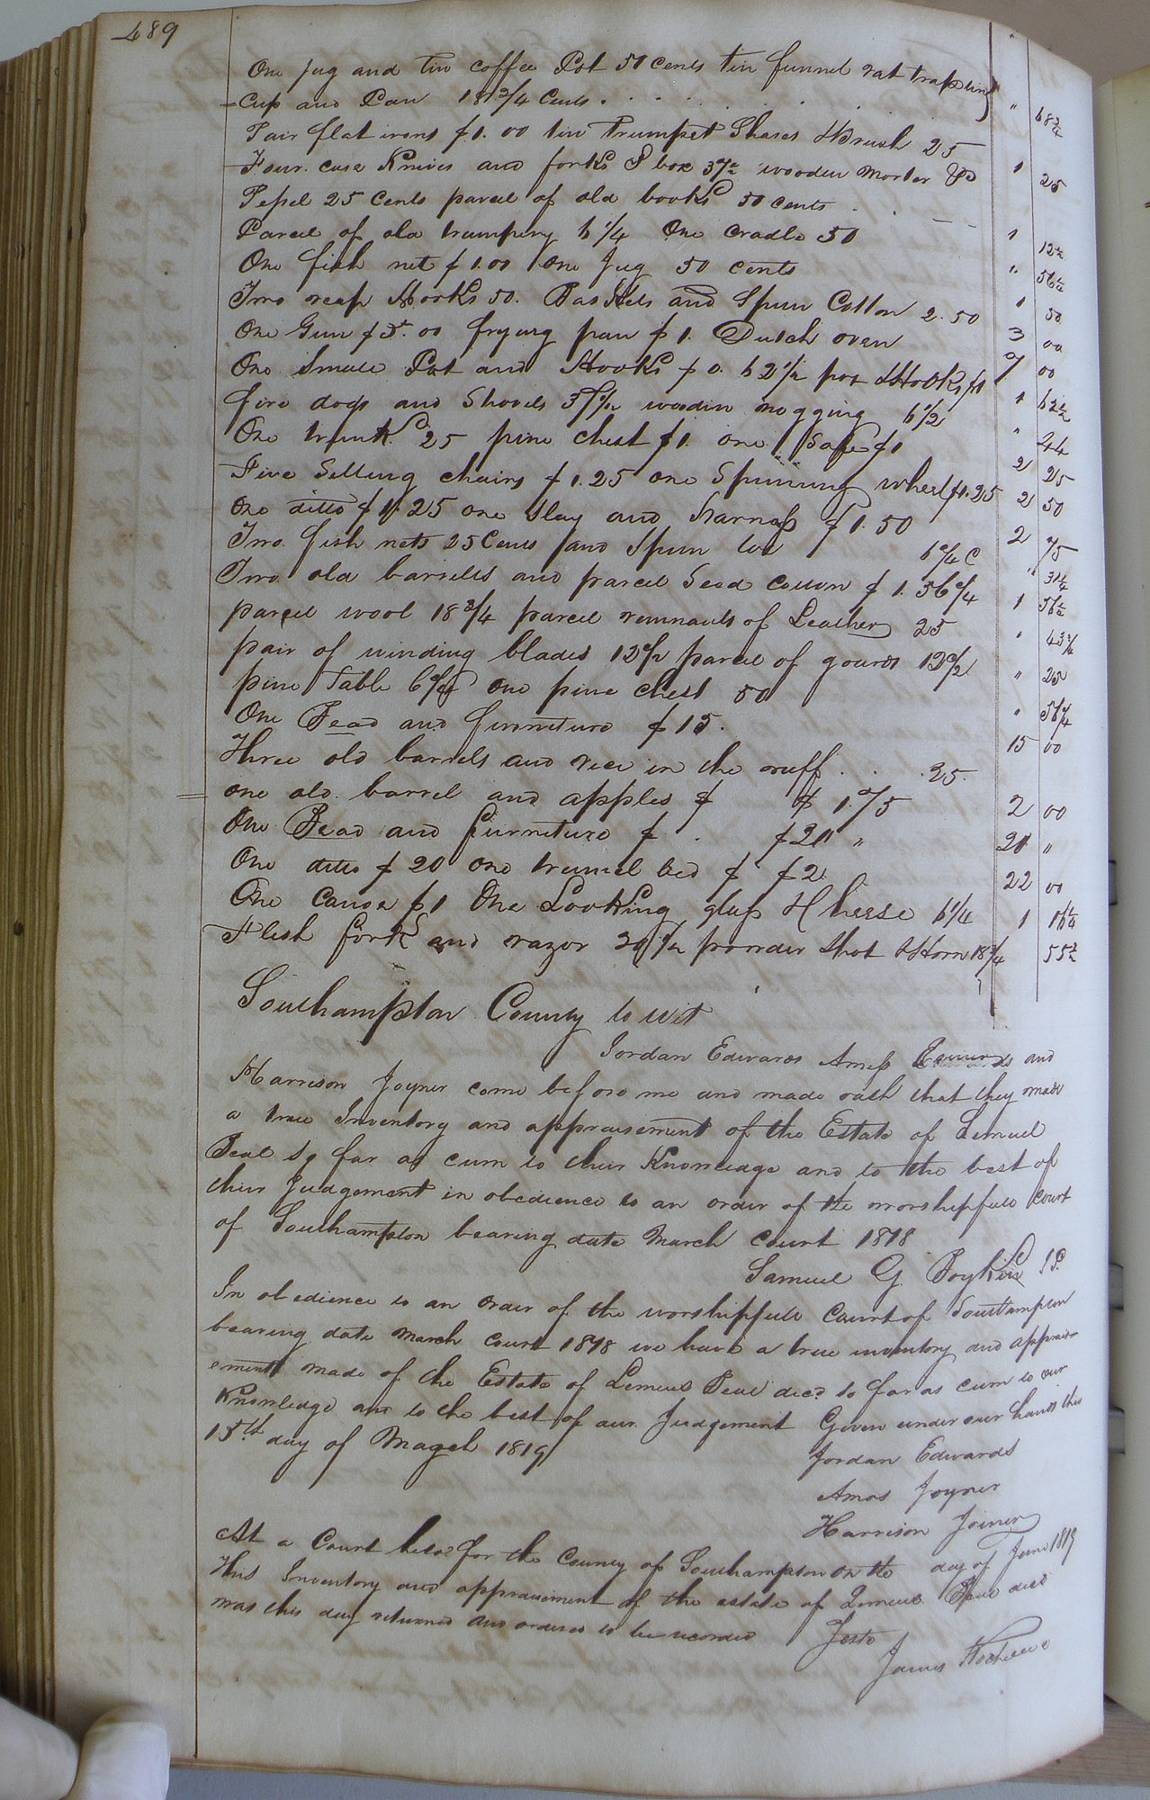 489
One Jug and tin coffee Pot 50 cents tin funnel rat trap tin " 68 3/4
Cup and Pan 18 3/4 Cents
Pair flat irons $1.00 tin Trumpet Shears & Brush 25 1 25
Four case Knives and forks & box 37 1/2 wooden Morter &
Pepel 25 Cents parcel of old books 50 cents 1 12 1/2
Parcel of old trumpery 6 1/4 One Cradle 50 " 56 1/4
One fish net $1.00 One Jug 50 cents 1 50
Two reap Hooks 50. Baskets and Spun Cotton 2.50 3 00
One Gun $5.00 frying pan $1. Dutch oven 7 00
One Small Pot and Hooks $0.62 1/2 pot & Hooks $1 1 62 1/2
fire dogs and Shovels 37 1/2 wooden nogging 6 1/2 " 44
One trunk 25 pine chest $1 one Safe $1 2 25
Five Setting chairs $1.25 one Spinning wheel $1.25 2 50
One ditto $1.25 one Slay and Harness $1.50 2 75
Two fish nets 25 Cents and Spun tow 6 1/4 C " 31 1/4
Two old barrells and parcel Seed cotton $1.56 1/4 1 56 1/4
parcel wool 18 3/4 parcel remnants of Leather 25 " 43 3/4
pair of winding blades 12 1/2 parcel of gourds 12 1/2 " 25
pine Table 6 1/4 one pine chest 50 " 56 1/4
One Bead and furniture $15. 15 00
Three old barrels and rice in the ruff . . . 25.
one old barrel and apples $ $1.75 2 00
One Bead and furniture $ . $20 " 20 "
One ditto $20 one trunnel bed $ $2 22 00
One Canoe $1 One Looking glass 6 1/4 1
Flesh fork and razor powder Shot & Horn 18 3/4
Southampton County to wit
Jordan Edwards Amos and
Harrison Joyner come before me and made oath that they made
a true Inventory and appraisement of the Estate of Lemuel
Beal so far as cum to their Knowledge and to the best of
their Judgement in obedience to an order of the worshipfull court
of Southampton bearing date March Court 1818
Samuel G Boykin J.P.
In obedience to an order of the worshipfull Court of Southampton
bearing date March Court 1818 we have a true inventory and apprais
ement made of the Estate of Lemuel Beal decd so far as cum to our
Knowledge and to the best of our Judgement Given under our hands this
15th day of 1819
Jordan Edwards
Amos Joyner
Harrison Joiner
At a Court held for the County of Southampton on the day of June 1819
This Inventory and appraisement of the estate of Lemuel Beal decd
was this day returned and ordered to be recorded Teste
James Rochelle